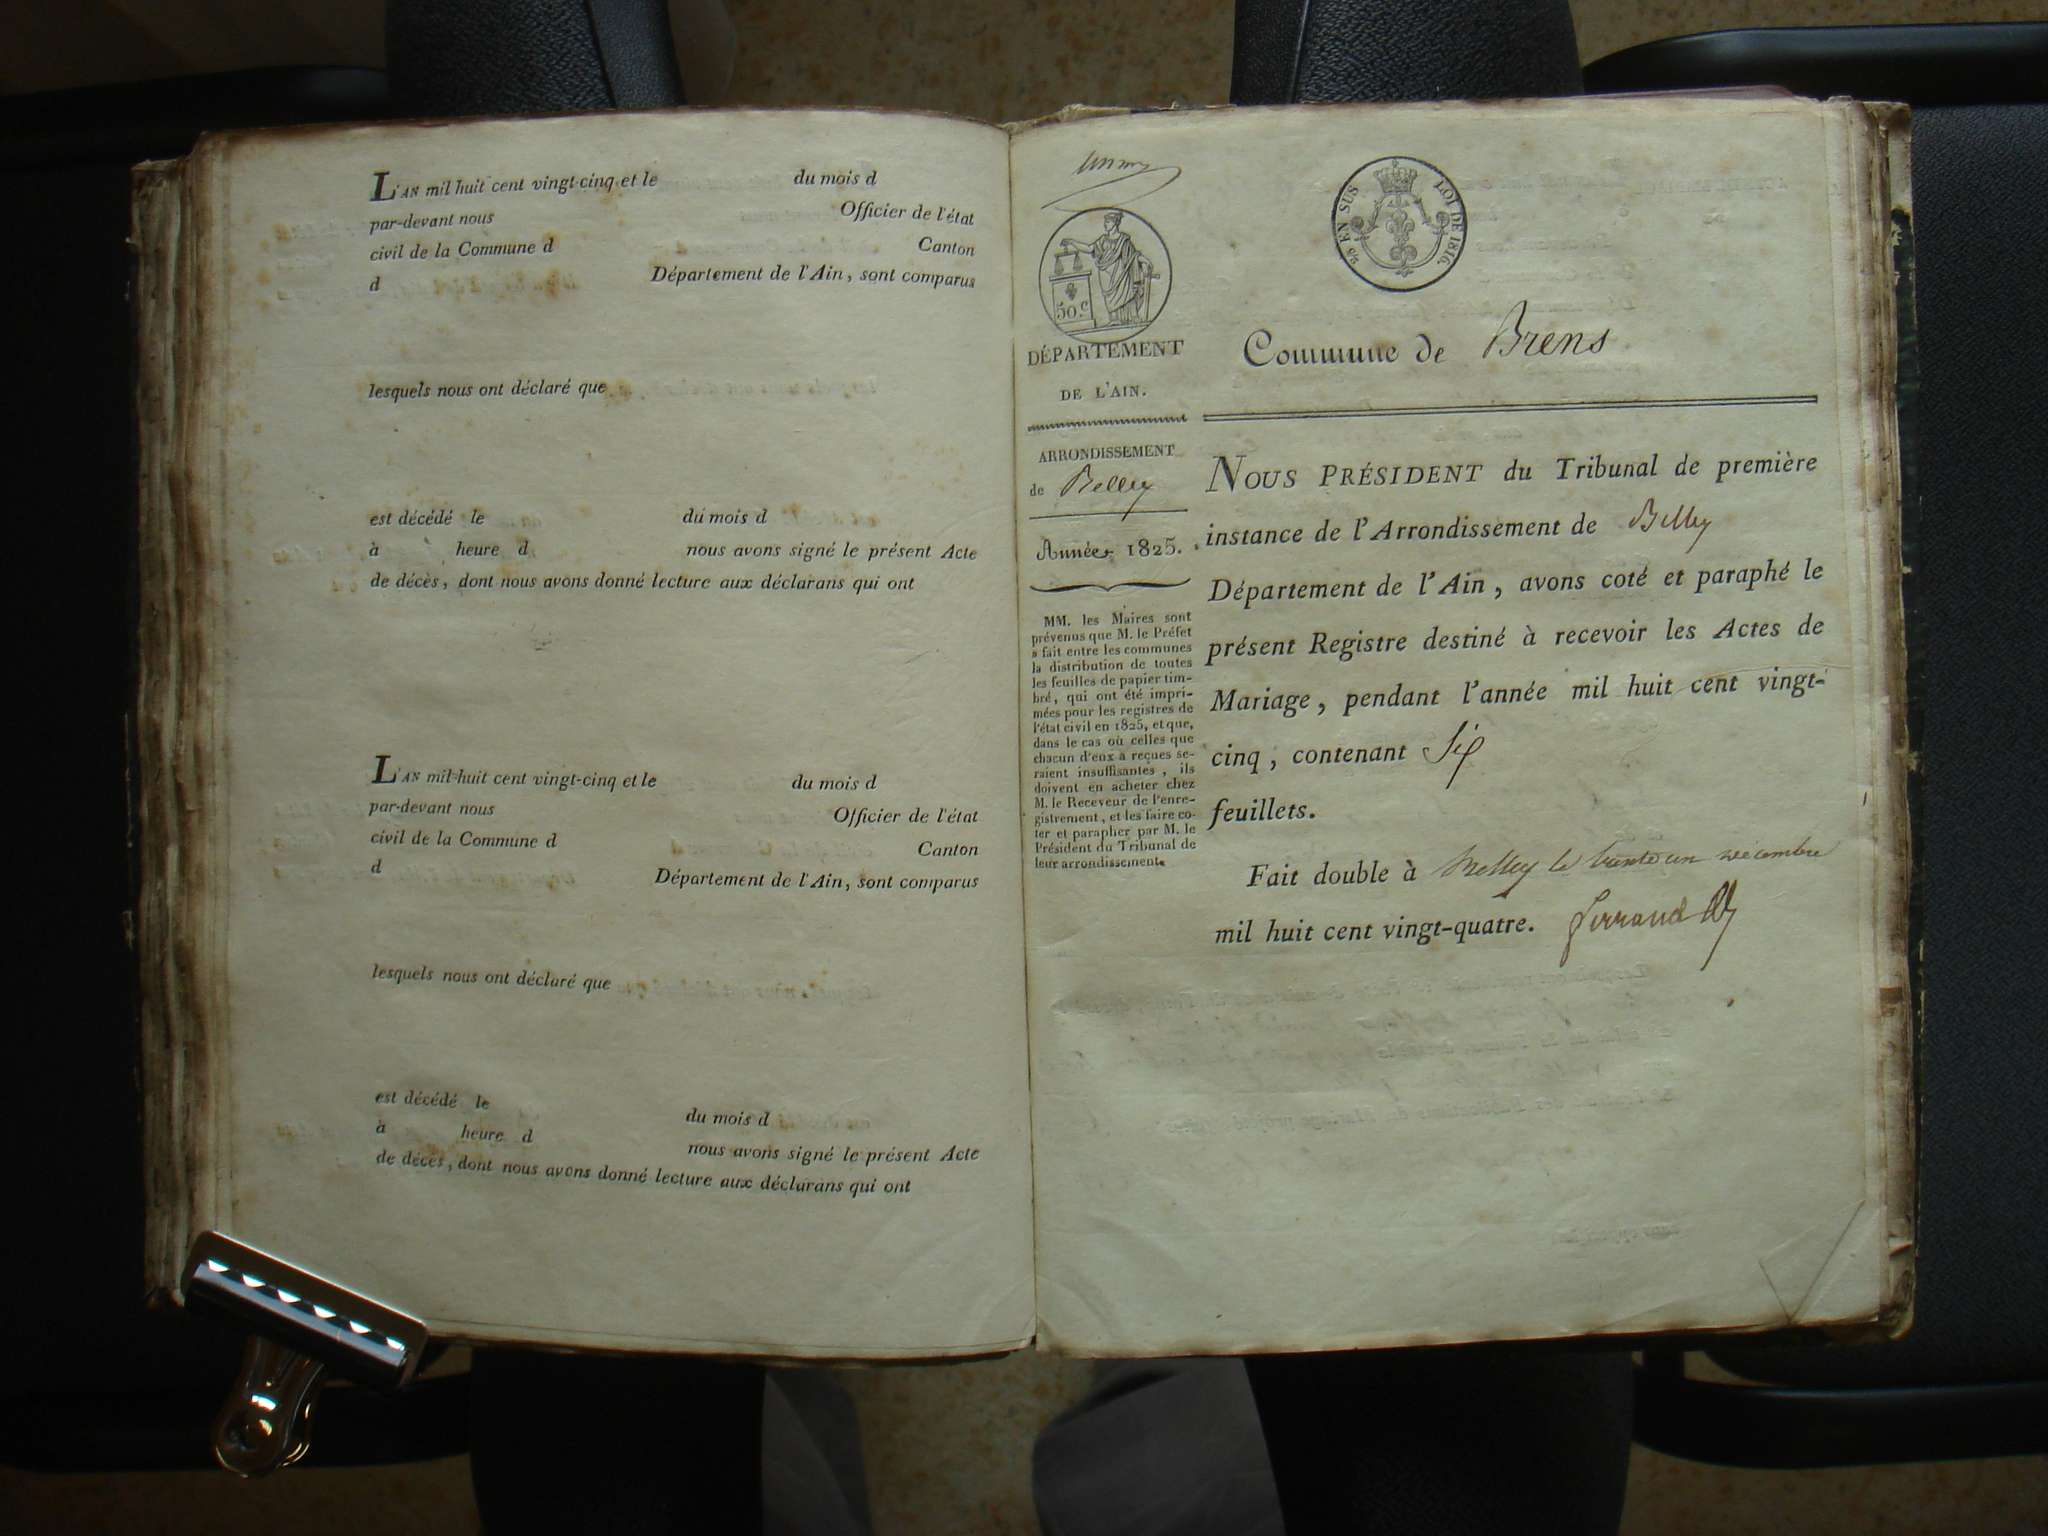 L'AN mil huit cent vingt-cinq et le du mois d
par-devant nous Officier de l'état
civil de la Commune d Canton
d Département de l'Ain, sont comparus
lesquels nous ont déclaré que
est décédé le du mois d
à heure d nous avons signé le présent Acte
de décès, dont nous avons donné lecture aux déclarans qui ont
L'AN mil huit cent vingt-cinq et le du mois d
par-devant nous Officier de l'état
civil de la Commune d Canton
d Département de l'Ain, sont comparus
lesquels nous ont déclaré que
est décédé le du mois d
à heure d nous avons signé le présent Acte
de décès, dont nous avons donné lecture aux déclarans qui ont
50.c
DÉPARTEMENT
DE L'AIN.
ARRONDISSEMENT
de Belley
Année 1825.
MM. les Maires sont
prévenus que M. le Préfet
a fait entre les communes
la distribution de toutes
les feuilles de papier tim-
bré, qui ont été impri-
mées pour les registres de
l'état civil en 1825, et que,
dans le cas où celles que
chacun d'eux a reçues se-
raient insuffisantes, ils
doivent en acheter chez
M. le Receveur de l'enre-
gistrement, et les faire co-
ter et parapher par M. le
Président du Tribunal de
leur arrondissement.
EN SUS LOI DE 1816.
Commune de Brens
NOUS PRÉSIDENT du Tribunal de première
instance de l'Arrondissement de Belley
Département de l'Ain, avons coté et paraphé le
présent Registre destiné à recevoir les Actes de
Mariage, pendant l'année mil huit cent vingt-
cinq, contenant Six
feuillets.
Fait double à Belley le trente un décembre
mil huit cent vingt-quatre. Ferrand